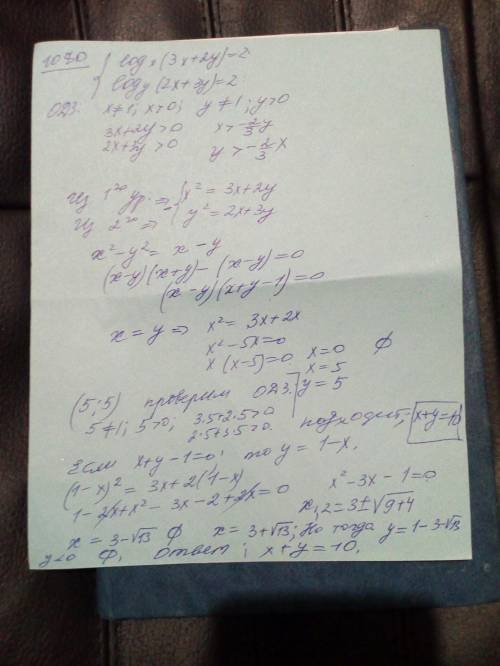 1080
{ log x (3x+2y)=2
log y (2x+3y)=2
ОДЗ. x≠1; x>0; y≠1; y>0
3x+2y>0 x>-2/3 y
2x+3y>0 y>-2/3 x
Из 1го ур. => { x² = 3x+2y
Из 2го => y² = 2x+3y
x²-y² = x-y
(x-y)(x+y)-(x-y)=0
(x-y)(x+y-1)=0
x=y => x² = 3x+2x
x²-5x=0
x(x-5)=0 x=0 ∅
x=5
y=5
(5;5) проверим ОДЗ.
5≠1; 5>0; 3·5+2·5>0 подходит; x+y=10
2·5+3·5>0.
Если x+y-1=0, то y=1-x.
(1-x)² = 3x+2(1-x) x²-3x-1=0
1-2x+x²-3x-2+2x=0 x1,2=3±√9+4
x=3-√13 ∅ x=3+√13; Но тогда y=1-3-√13
y<0 ∅. Ответ: x+y=10.